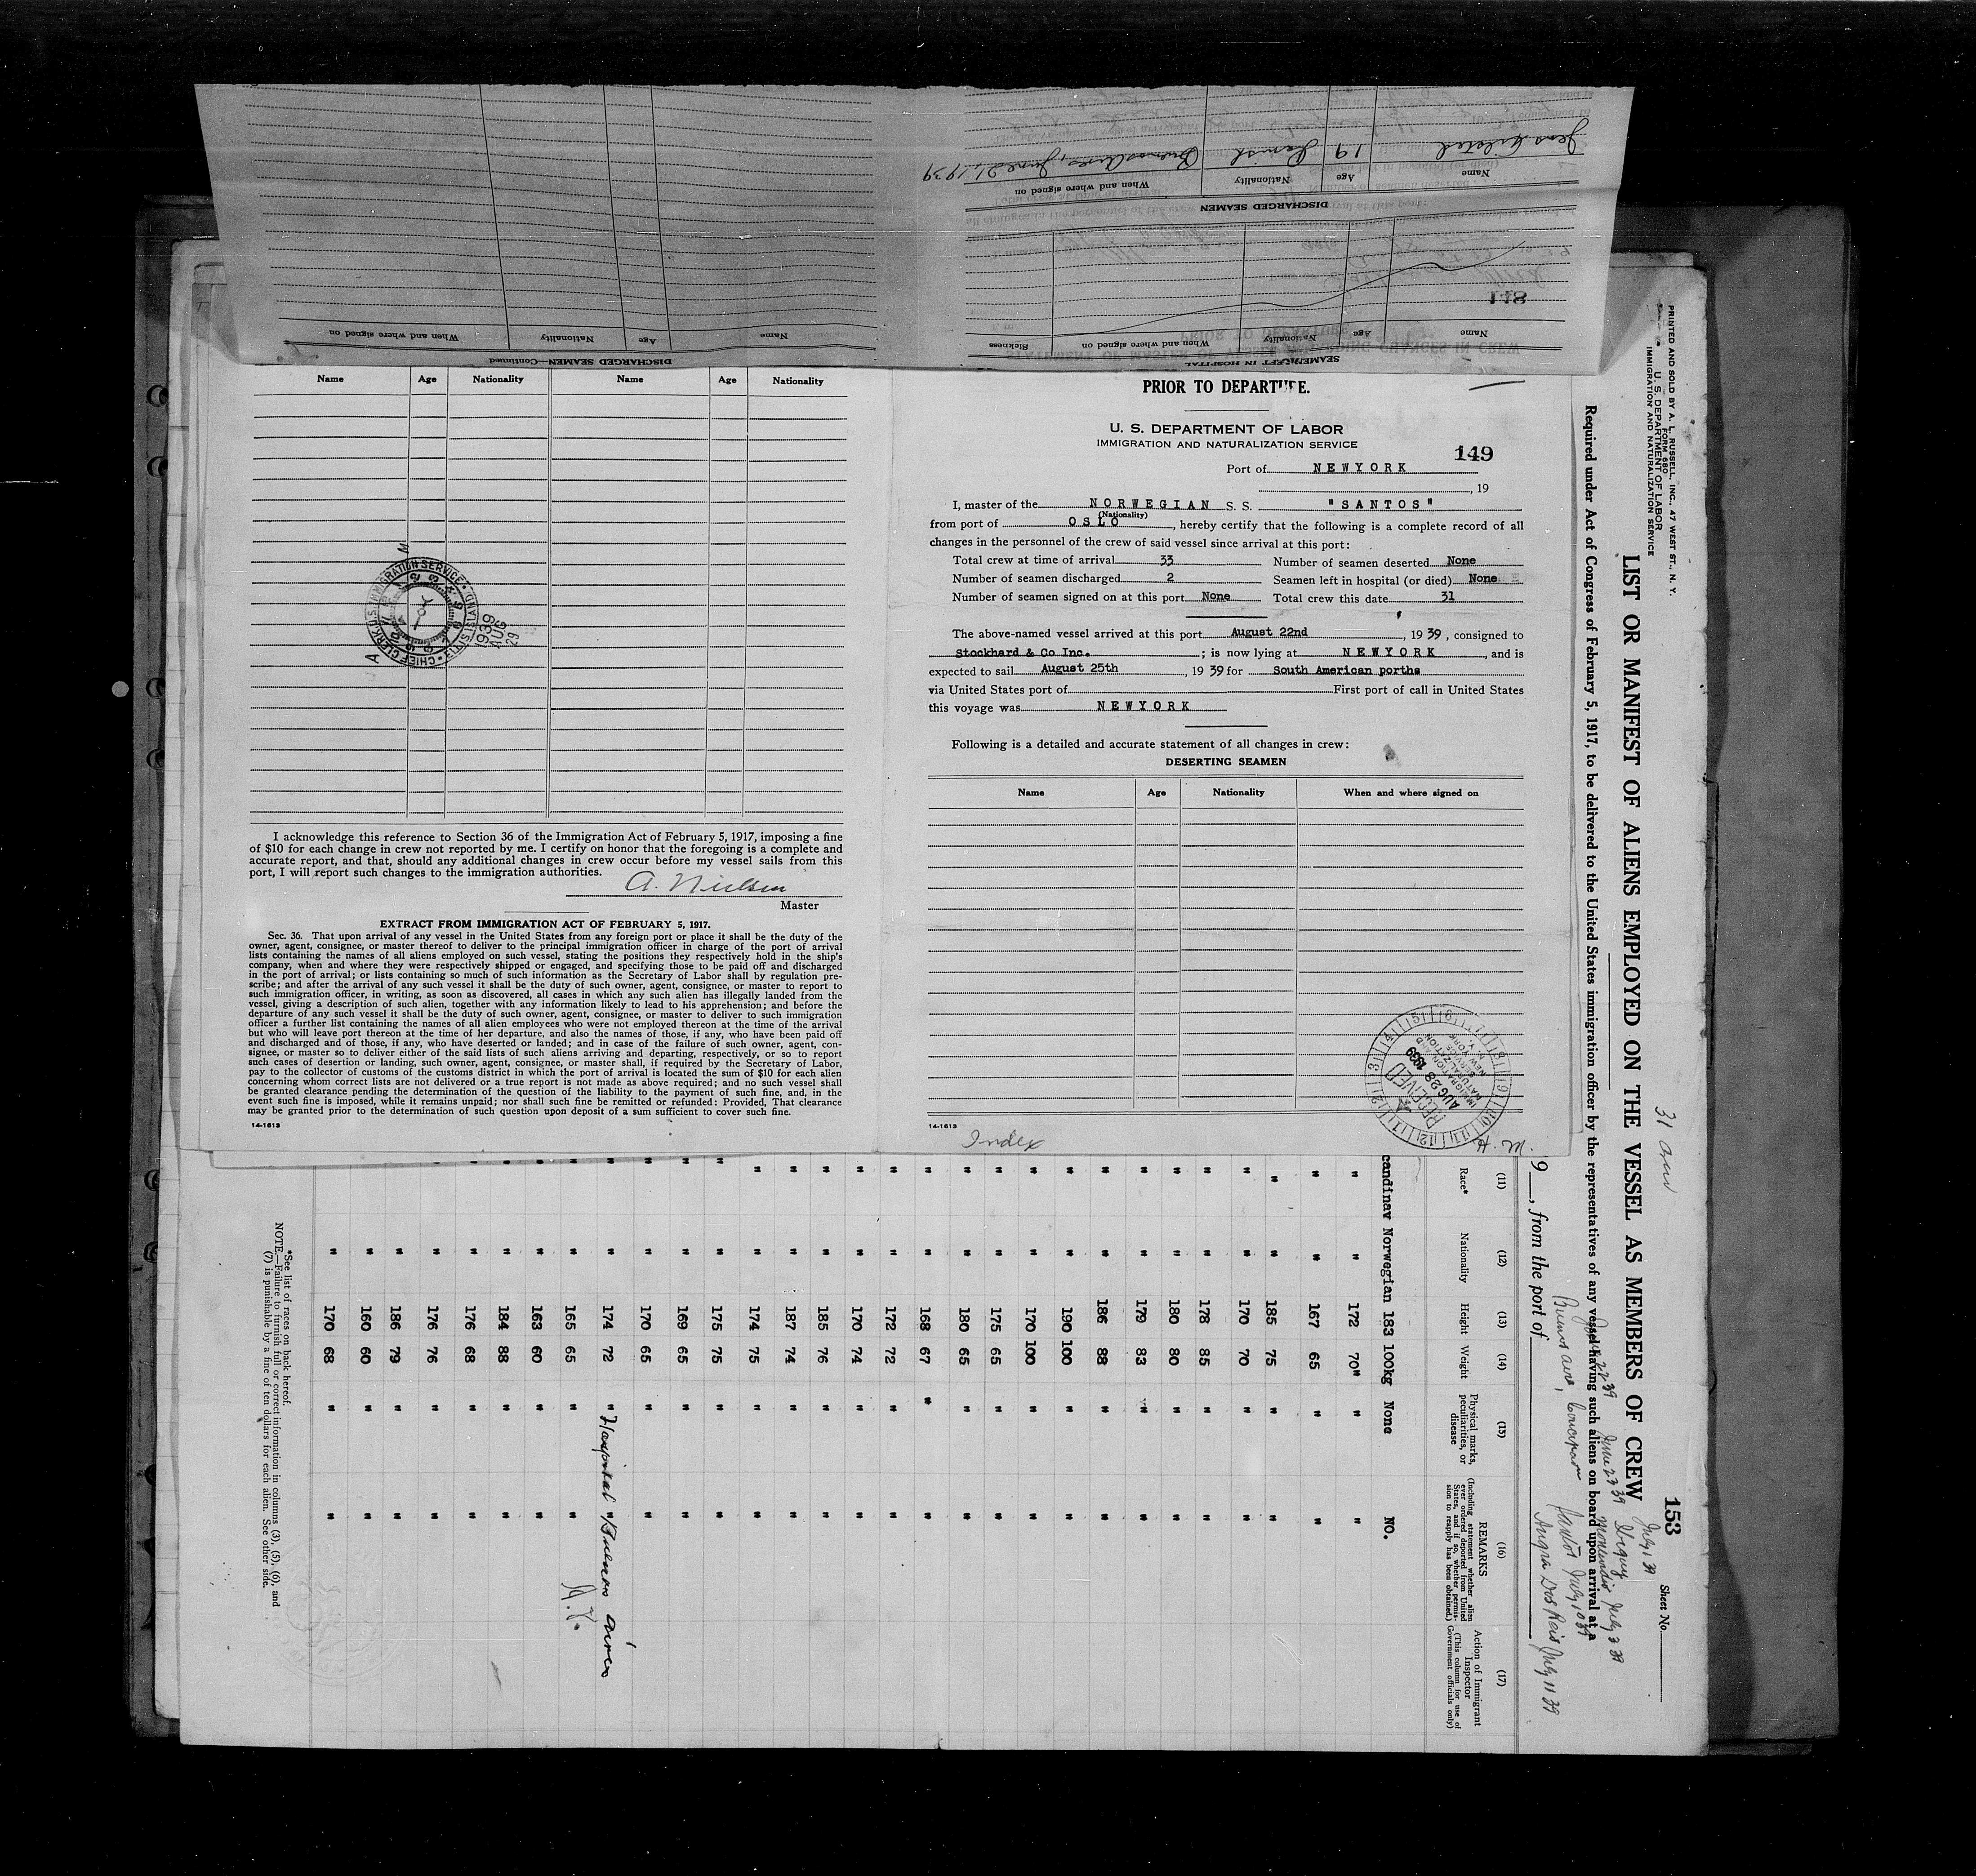 Jens
19
Danish
Buenos Aires, June 21, 1939
Name
Age
Nationality
When and where signed on
DISCHARGED SEAMEN
148
Name
Age
Nationality
When and where signed on
Sickness
SEAMEN LEFT IN HOSPITAL
Name
Age
Nationality
When and where signed on
DISCHARGED SEAMEN—Continued
Name Age Nationality Name Age Nationality
CHIEF CLERK U.S. IMMIGRATION SERVICE • ELLIS ISLAND
1939 AUG 29
I acknowledge this reference to Section 36 of the Immigration Act of February 5, 1917, imposing a fine
of $10 for each change in crew not reported by me. I certify on honor that the foregoing is a complete and
accurate report, and that, should any additional changes in crew occur before my vessel sails from this
port, I will report such changes to the immigration authorities.
A. Nielsen
Master
EXTRACT FROM IMMIGRATION ACT OF FEBRUARY 5, 1917.
Sec. 36. That upon arrival of any vessel in the United States from any foreign port or place it shall be the duty of the
owner, agent, consignee, or master thereof to deliver to the principal immigration officer in charge of the port of arrival
lists containing the names of all aliens employed on such vessel, stating the positions they respectively hold in the ship's
company, when and where they were respectively shipped or engaged, and specifying those to be paid off and discharged
in the port of arrival; or lists containing so much of such information as the Secretary of Labor shall by regulation pre-
scribe; and after the arrival of any such vessel it shall be the duty of such owner, agent, consignee, or master to report to
such immigration officer, in writing, as soon as discovered, all cases in which any such alien has illegally landed from the
vessel, giving a description of such alien, together with any information likely to lead to his apprehension; and before the
departure of any such vessel it shall be the duty of such owner, agent, consignee, or master to deliver to such immigration
officer a further list containing the names of all alien employees who were not employed thereon at the time of the arrival
but who will leave port thereon at the time of her departure, and also the names of those, if any, who have been paid off
and discharged and of those, if any, who have deserted or landed; and in case of the failure of such owner, agent, con-
signee, or master so to deliver either of the said lists of such aliens arriving and departing, respectively, or so to report
such cases of desertion or landing, such owner, agent, consignee, or master shall, if required by the Secretary of Labor,
pay to the collector of customs of the customs district in which the port of arrival is located the sum of $10 for each alien
concerning whom correct lists are not delivered or a true report is not made as above required; and no such vessel shall
be granted clearance pending the determination of the question of the liability to the payment of such fine, and, in the
event such fine is imposed, while it remains unpaid; nor shall such fine be remitted or refunded: Provided, That clearance
may be granted prior to the determination of such question upon deposit of a sum sufficient to cover such fine.
14-1613
PRIOR TO DEPARTURE.
U. S. DEPARTMENT OF LABOR
IMMIGRATION AND NATURALIZATION SERVICE
149
Port of NEWYORK
, 19
I, master of the NORWEGIAN S. S. "SANTOS"
(Nationality)
from port of OSLO, hereby certify that the following is a complete record of all
changes in the personnel of the crew of said vessel since arrival at this port:
Total crew at time of arrival 33 Number of seamen deserted None
Number of seamen discharged 2 Seamen left in hospital (or died) None
Number of seamen signed on at this port None Total crew this date 31
The above-named vessel arrived at this port August 22nd, 1939, consigned to
Stockhard & Co Inc.; is now lying at NEWYORK, and is
expected to sail August 25th, 1939 for South American porths
via United States port of First port of call in United States
this voyage was NEWYORK
Following is a detailed and accurate statement of all changes in crew:
DESERTING SEAMEN
Name Age Nationality When and where signed on
RECEIVED
AUG 28 1939
IMMIGRATION AND
NATURALIZATION
SERVICE
NEW YORK
N. Y.
14-1613
Index
PRINTED AND SOLD BY A. L. RUSSELL, INC., 47 WEST ST., N. Y.
FORM 680
U. S. DEPARTMENT OF LABOR
IMMIGRATION AND NATURALIZATION SERVICE
153
Sheet No.
LIST OR MANIFEST OF ALIENS EMPLOYED ON THE VESSEL AS MEMBERS OF CREW
Required under Act of Congress of February 5, 1917, to be delivered to the United States immigration officer by the representatives of any vessel having such aliens on board upon arrival at a
June 23 39
July 1 39
Montevideo July 3 39
Buenos aires,
Santos July 10 39
Angra Dos Reis July 11 39
9 , from the port of
(11) (12) (13) (14) (15) (16) (17)
Race* Nationality Height Weight Physical marks, peculiarities, or disease
REMARKS
(Including statement whether alien ever ordered deported from United States, and if so, whether permission to reapply has been obtained.)
Action of Immigrant Inspector
(This column for use of Government officials only)
candinav Norwegian 183 100kg None NO.
" " 172 70" " "
" " 167 65 " "
" " 185 75 " "
" " 170 70 " "
" " 178 85 " "
" " 180 80 " "
" " 179 83 " "
" " 186 88 " "
" " 190 100 " "
" " 170 100 " "
" " 175 65 " "
" " 180 65 " "
" " 168 67 " "
" " 172 72 " "
" " 170 74 " "
" " 185 76 " "
" " 187 74 " "
" " 174 75 " "
" " 175 75 " "
" " 169 65 " "
" " 170 65 " "
" " 174 72 " Hospital " Buenos Aires
" " 165 65 " "
" " 163 60 " "
" " 184 88 " "
" " 176 68 " "
" " 176 76 " "
" " 186 79 " "
" " 160 60 " "
" " 170 68 " "
*See list of races on back hereof.
NOTE.—Failure to furnish full or correct information in columns (3), (5), (6), and
(7) is punishable by a fine of ten dollars for each alien. See other side.